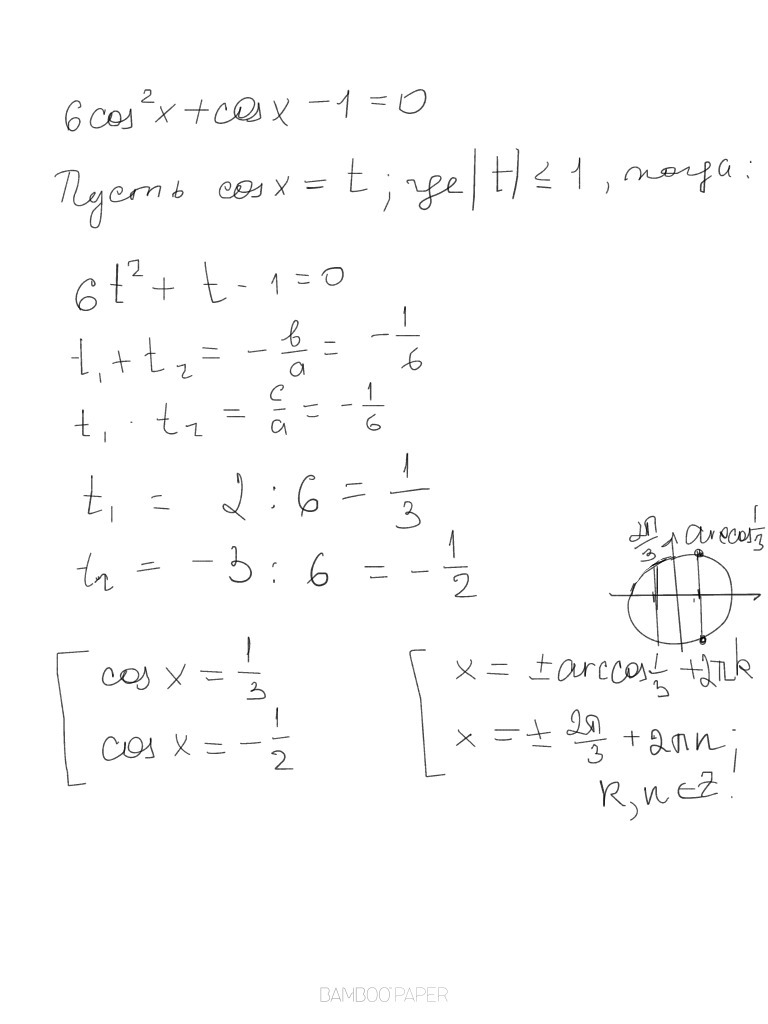 6cos²x + cosx − 1 = 0
Пусть cosx = t ; где |t| ≤ 1, тогда:
6t² + t − 1 = 0
t₁ + t₂ = − b/a = − 1/6
t₁ · t₂ = c/a = − 1/6
t₁ = 2 : 6 = 1/3
t₂ = −3 : 6 = − 1/2
2π/3 arccos 1/3
cos x = 1/3
cos x = − 1/2
x = ± arccos 1/3 + 2πk
x = ± 2π/3 + 2πn ;
k, n ∈ Z.
BAMBOO PAPER